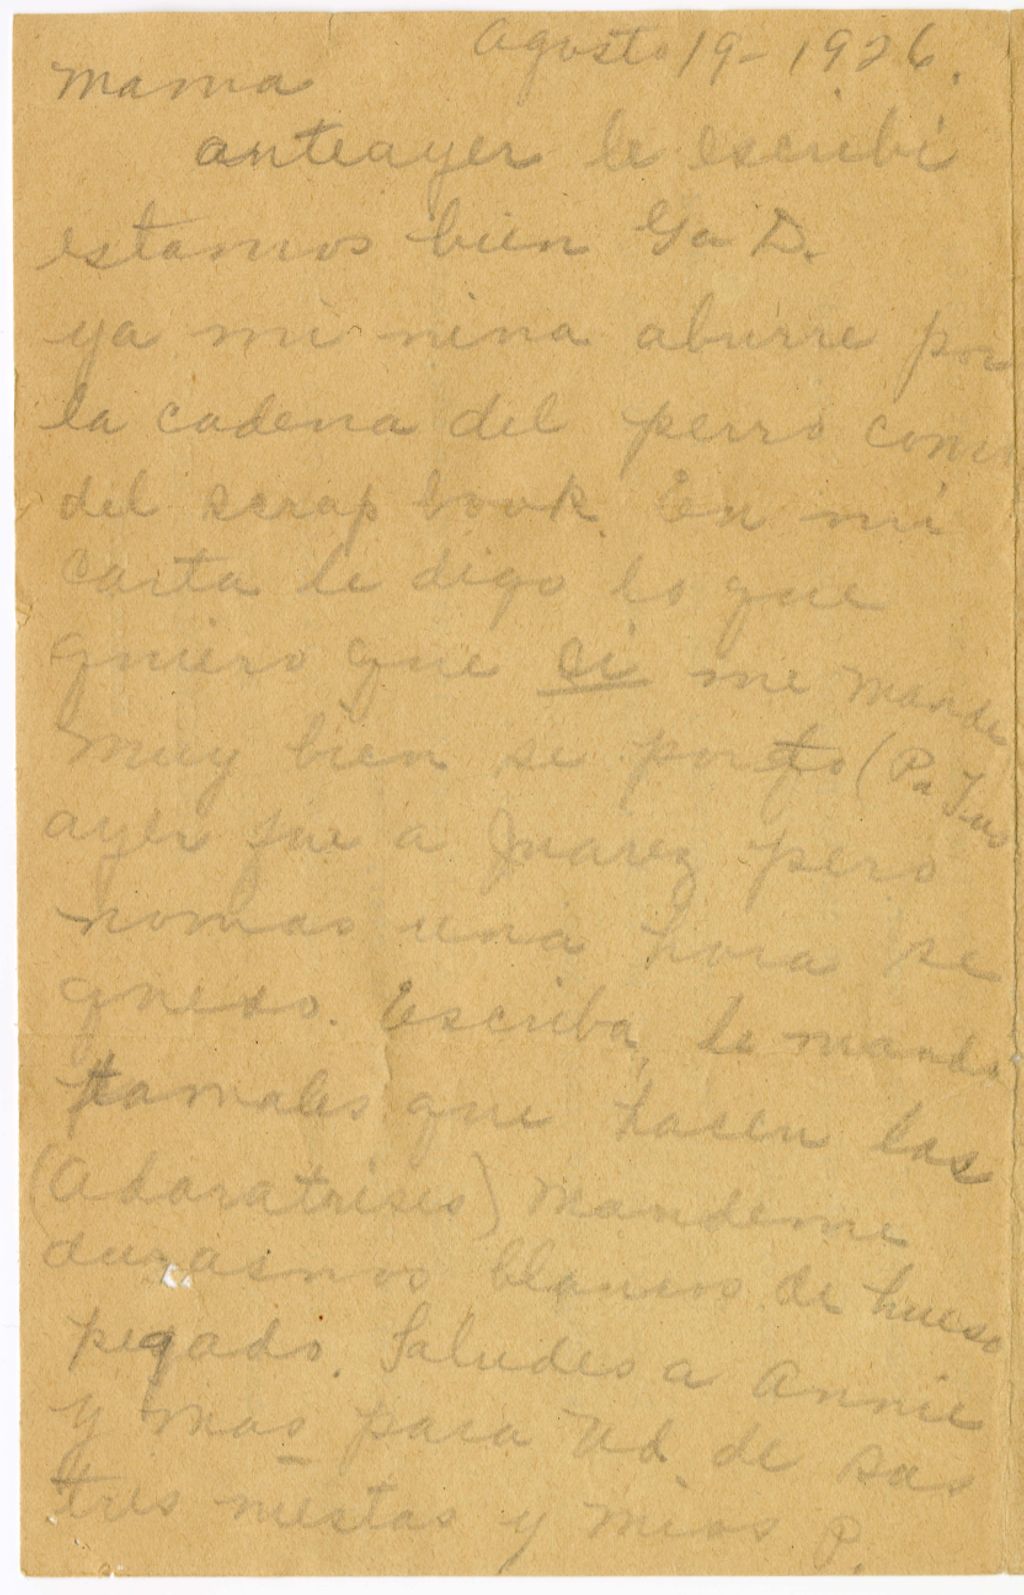 Agosto 19-1926.
Mama
anteayer le escribi
estamos bien Ga D.
ya mi nina aburre por
la cadena del perro como
del scrap book. En mi
carta le digo lo que
quiero que si me mande
Muy bien se porto (Pa
ayer fue a Juarez pero
nomas una hora se
quedo. Escriba, le mando
tamales que hacen las
(Adoratrises) Mandeme
durasnos blancos de hueso
pegado. Saludes a Annie
y mas para Ud. de sas
tres niestas y mias P.